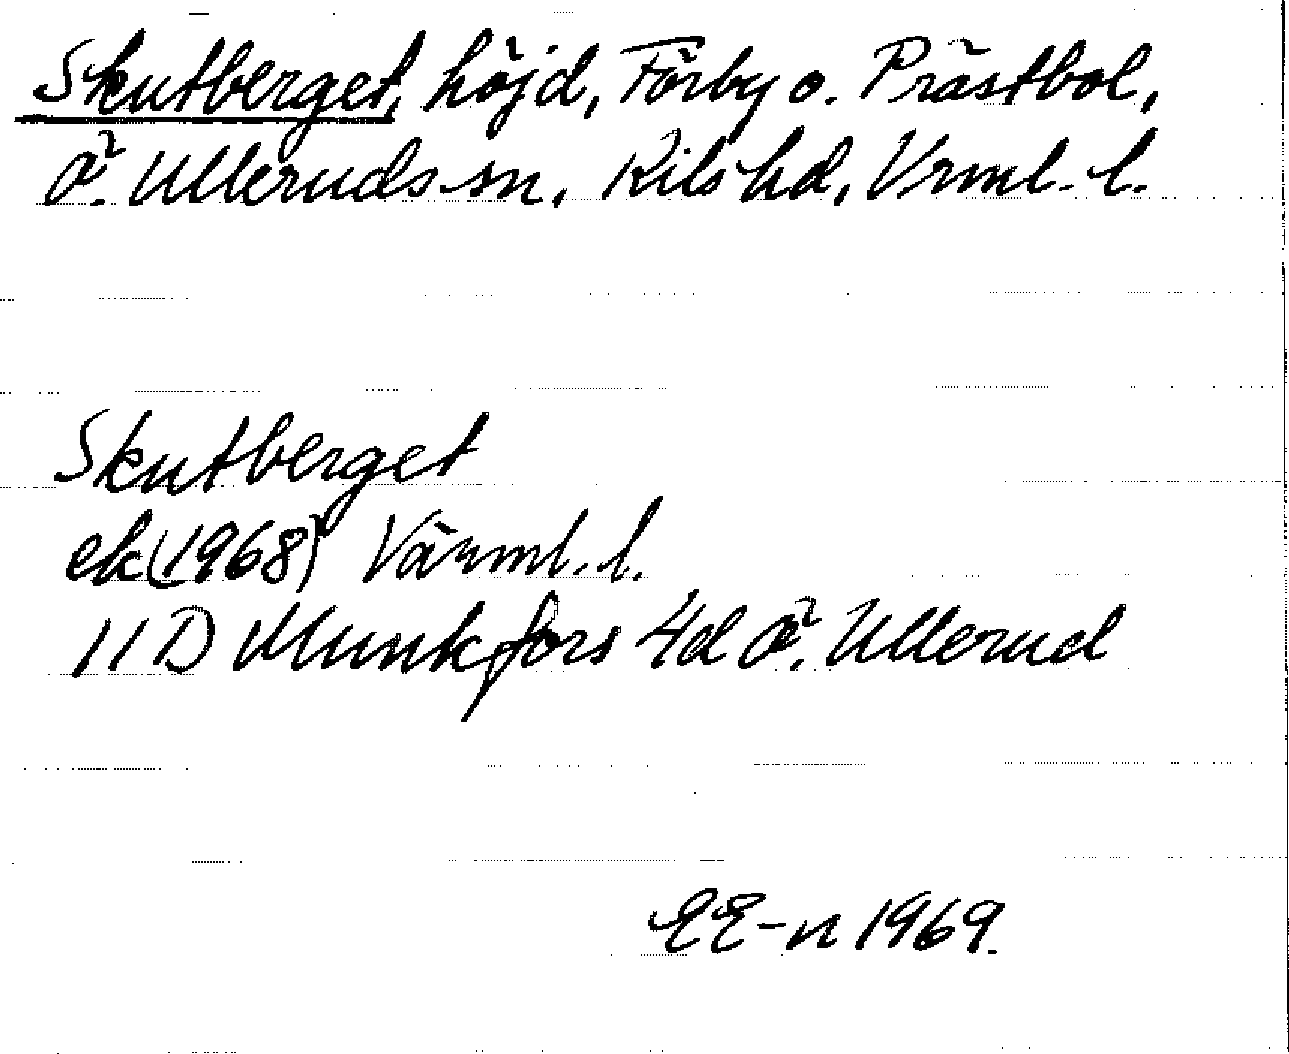 Skutberget, höjd, Förby o. Prästbol,
Ö. Ulleruds sn, Kils hd, Vrml. l.
Skutberget
ek (1968) Värml. l.
11 D Munkfors 4d Ö. Ullerud
EE-n 1969.